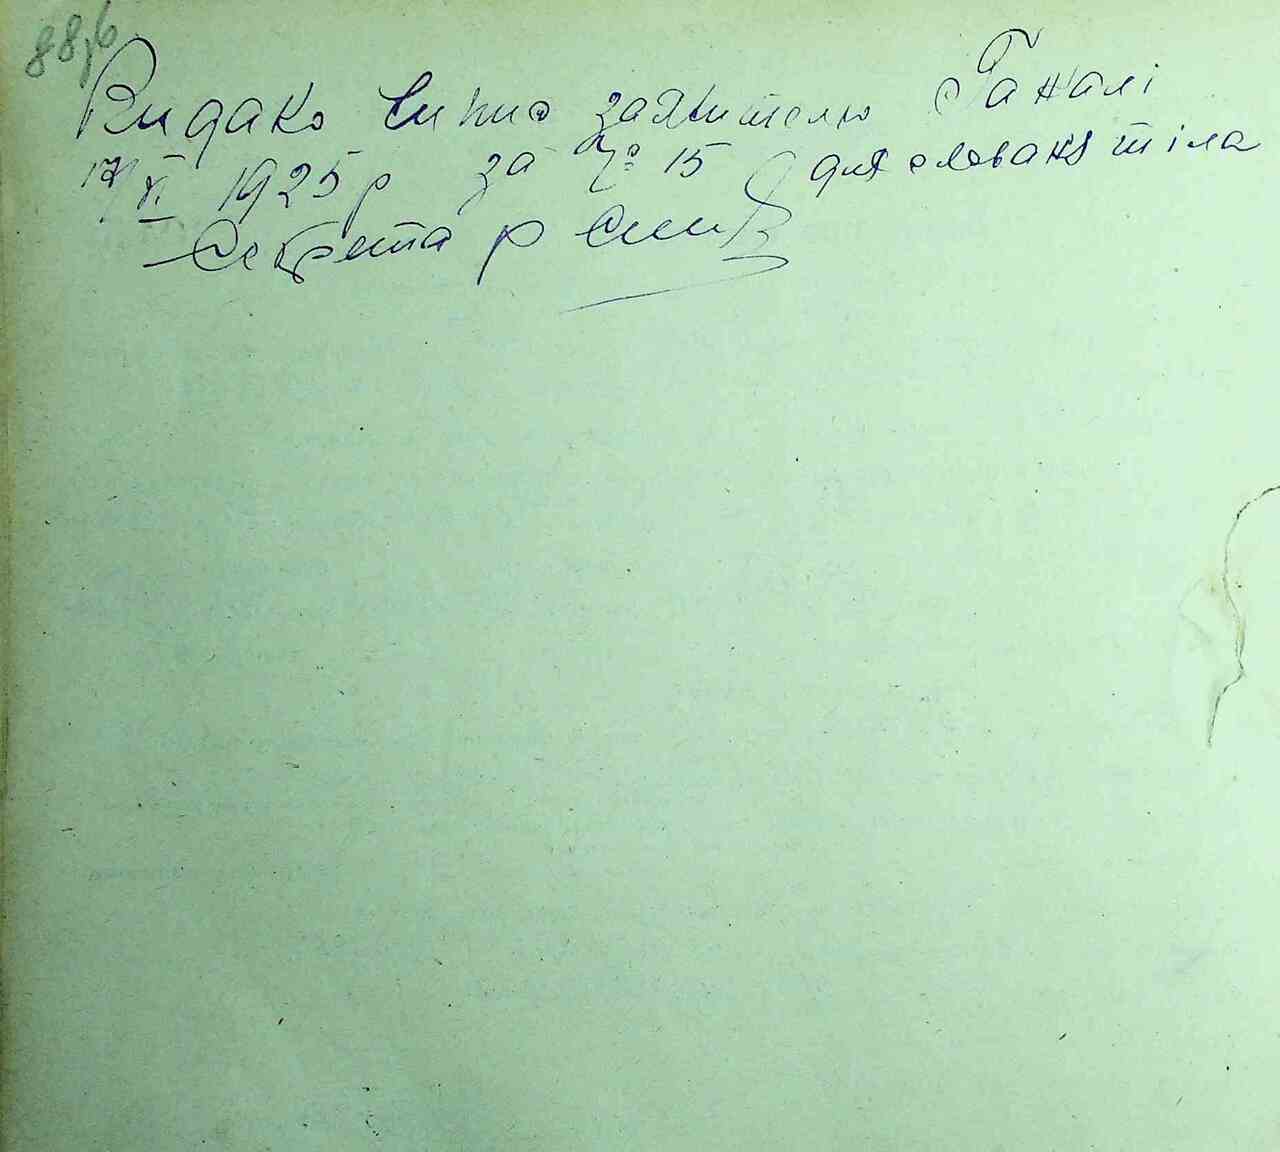 88,б
Видако випис заявителю Ганалі
17/XI 1925 р за № 15 для ховання тіла
Секретар